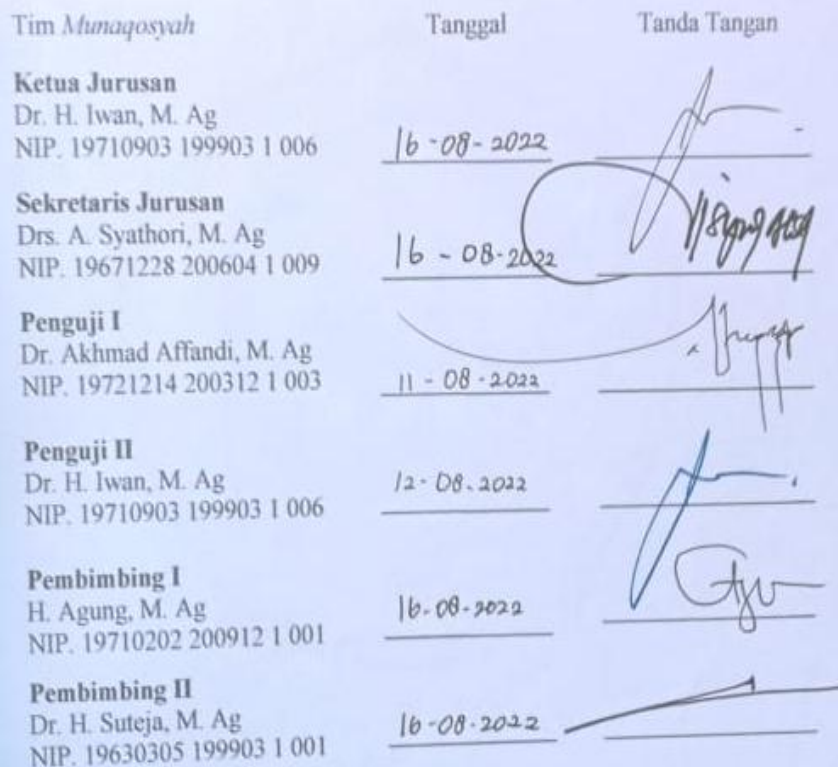 Tim Munaqosyah Tanggal Tanda Tangan
Ketua Jurusan
Dr. H. Iwan, M. Ag
NIP. 19710903 199903 1 006 16-08-2022
Sekretaris Jurusan
Drs. A. Syathori, M. Ag
NIP. 19671228 200604 1 009 16-08-2022
Penguji I
Dr. Akhmad Affandi, M. Ag
NIP. 19721214 200312 1 003 11-08-2022
Penguji II
Dr. H. Iwan, M. Ag 12-08.2022
NIP. 19710903 199903 1 006
Pembimbing I
H. Agung, M. Ag 16-08-2022
NIP. 19710202 200912 1 001
Pembimbing II
Dr. H. Suteja, M. Ag 16-08-2022
NIP. 19630305 199903 1 001